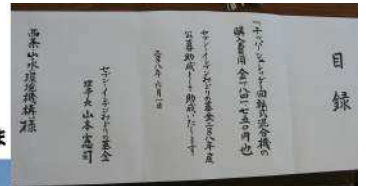 目録
「チッパーシュレッダー・回転式混合機の
購入費用 金一八四一七五〇円也
セブン-イレブンみどりの基金二〇〇八年度
公募助成として助成いたします
二〇〇八年 六月一日
セブン-イレブンみどりの基金
理事長 山本憲司
西条山水環境機構 様
ま